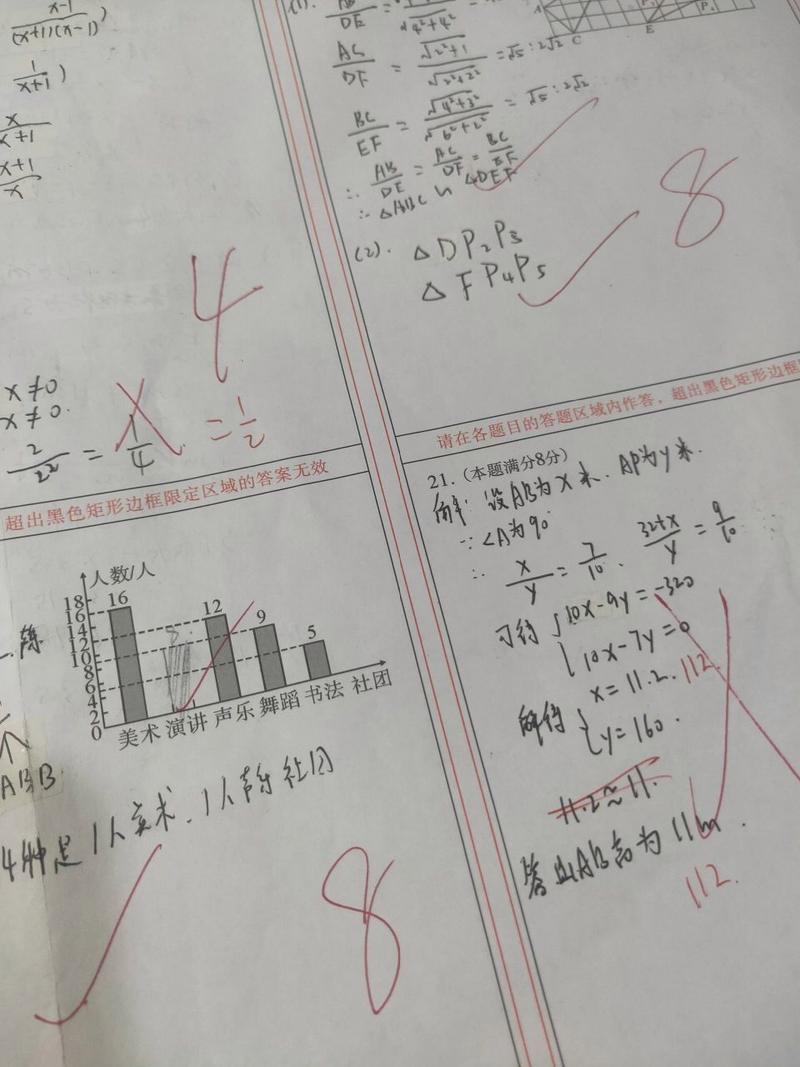 x-1
(x+1)(x-1)
1
x+1
x
x+1
x+1
x
x≠0
x≠0.
2/2² = 1/4 = 1/2
4
超出黑色矩形边框限定区域的答案无效
人数/人
18
16
14
12
10
8
6
4
2
0
16
12
9
5
美术 演讲 声乐 舞蹈 书法 社团
4种是1人美术、1人声乐社团
8
(1).
AB/DE = √4²+4²
AC/DF = √2²+1/√2²+2² = √5:2√2
BC/EF = √4²+3²/√6²+2² = √5:2√2
∴ AB/DE = AC/DF = BC/EF
∴ △ABC ∽ △DEF
(2). △DP₂P₃
△FP₄P₅
8
A
C
E
请在各题目的答题区域内作答，超出黑色矩形边框
21.（本题满分8分）
解：设AB为x米、AP为y米.
∵∠A为90
∴ x/y = 7/10、32+x/y = 9/10
可得 {10x-9y=-320
10x-7y=0
解得 {x=11.2. 112
y=160.
11.2≈11.
答：AB高为11m.
112.